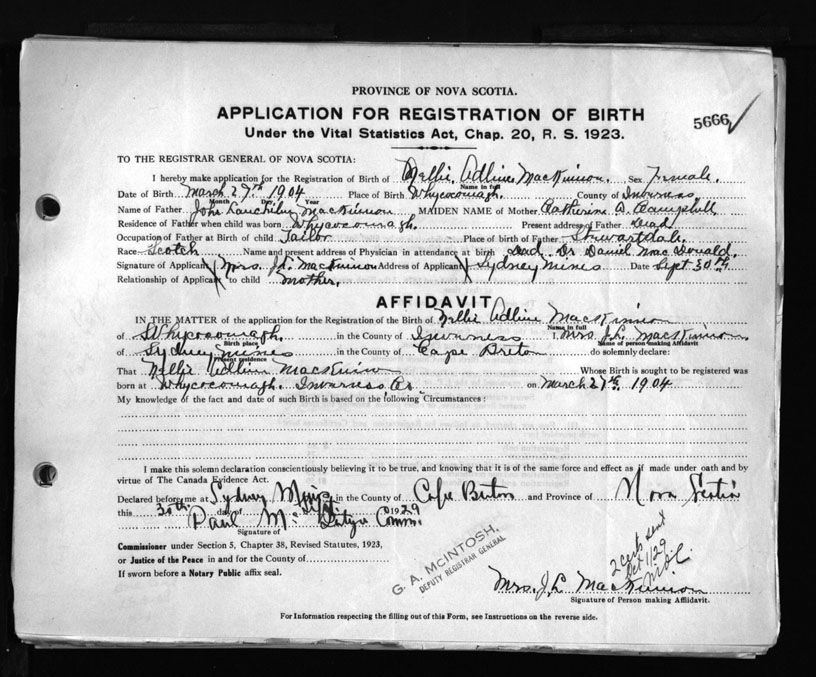 PROVINCE OF NOVA SCOTIA.
APPLICATION FOR REGISTRATION OF BIRTH
5666
Under the Vital Statistics Act, Chap. 20, R. S. 1923.
TO THE REGISTRAR GENERAL OF NOVA SCOTIA:
I hereby make application for the Registration of Birth of Nellie Adline MacKinnon. Sex Female.
Name in full
Date of Birth March 27th 1904 Place of Birth Whycocomagh. County of Inverness
Month Day Year
Name of Father John Lauchlin MacKinnon MAIDEN NAME of Mother Catherine A. Campbell
Residence of Father when child was born Whycocomagh. Present address of Father Dead
Occupation of Father at Birth of child Tailor Place of birth of Father Stewartdale.
Race Scotch Name and present address of Physician in attendance at birth Dead Dr Daniel MacDonald.
Signature of Applicant Mrs. J.L. MacKinnon Address of Applicant Sydney Mines Date Sept 30th
Relationship of Applicant to child mother.
AFFIDAVIT
IN THE MATTER of the application for the Registration of the Birth of Nellie Adline MacKinnon
Name in full
of Whycocomagh. in the County of Inverness I, Mrs J.L. MacKinnon
Birth place Name of person making Affidavit
of Sydney Mines in the County of Cape Breton do solemnly declare:
Present residence
That Nellie Adline MacKinnon Whose Birth is sought to be registered was
born at Whycocomagh. Inverness Co. on March 27th 1904
My knowledge of the fact and date of such Birth is based on the following Circumstances:
I make this solemn declaration conscientiously believing it to be true, and knowing that it is of the same force and effect as if made under oath and by
virtue of The Canada Evidence Act.
Declared before me at Sydney Mines in the County of Cape Breton and Province of Nova Scotia
this 30th day of Sept 1929
Paul Mc Comm.
Signature of
Commissioner under Section 5, Chapter 38, Revised Statutes, 1923,
or Justice of the Peace in and for the County of
If sworn before a Notary Public affix seal.
G. A. MCINTOSH,
DEPUTY REGISTRAR GENERAL
2 certs sent
Oct 1/29
Mrs. J. L MacKinnon
Signature of Person making Affidavit.
For Information respecting the filling out of this Form, see Instructions on the reverse side.